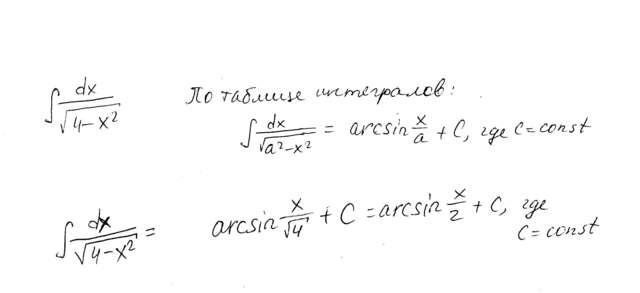 ∫ dx/√(4-x²) По таблице интегралов:
∫ dx/√(a²-x²) = arcsin x/a + C, где C=const
∫ dx/√(4-x²) = arcsin x/√4 + C = arcsin x/2 + C, где
C=const